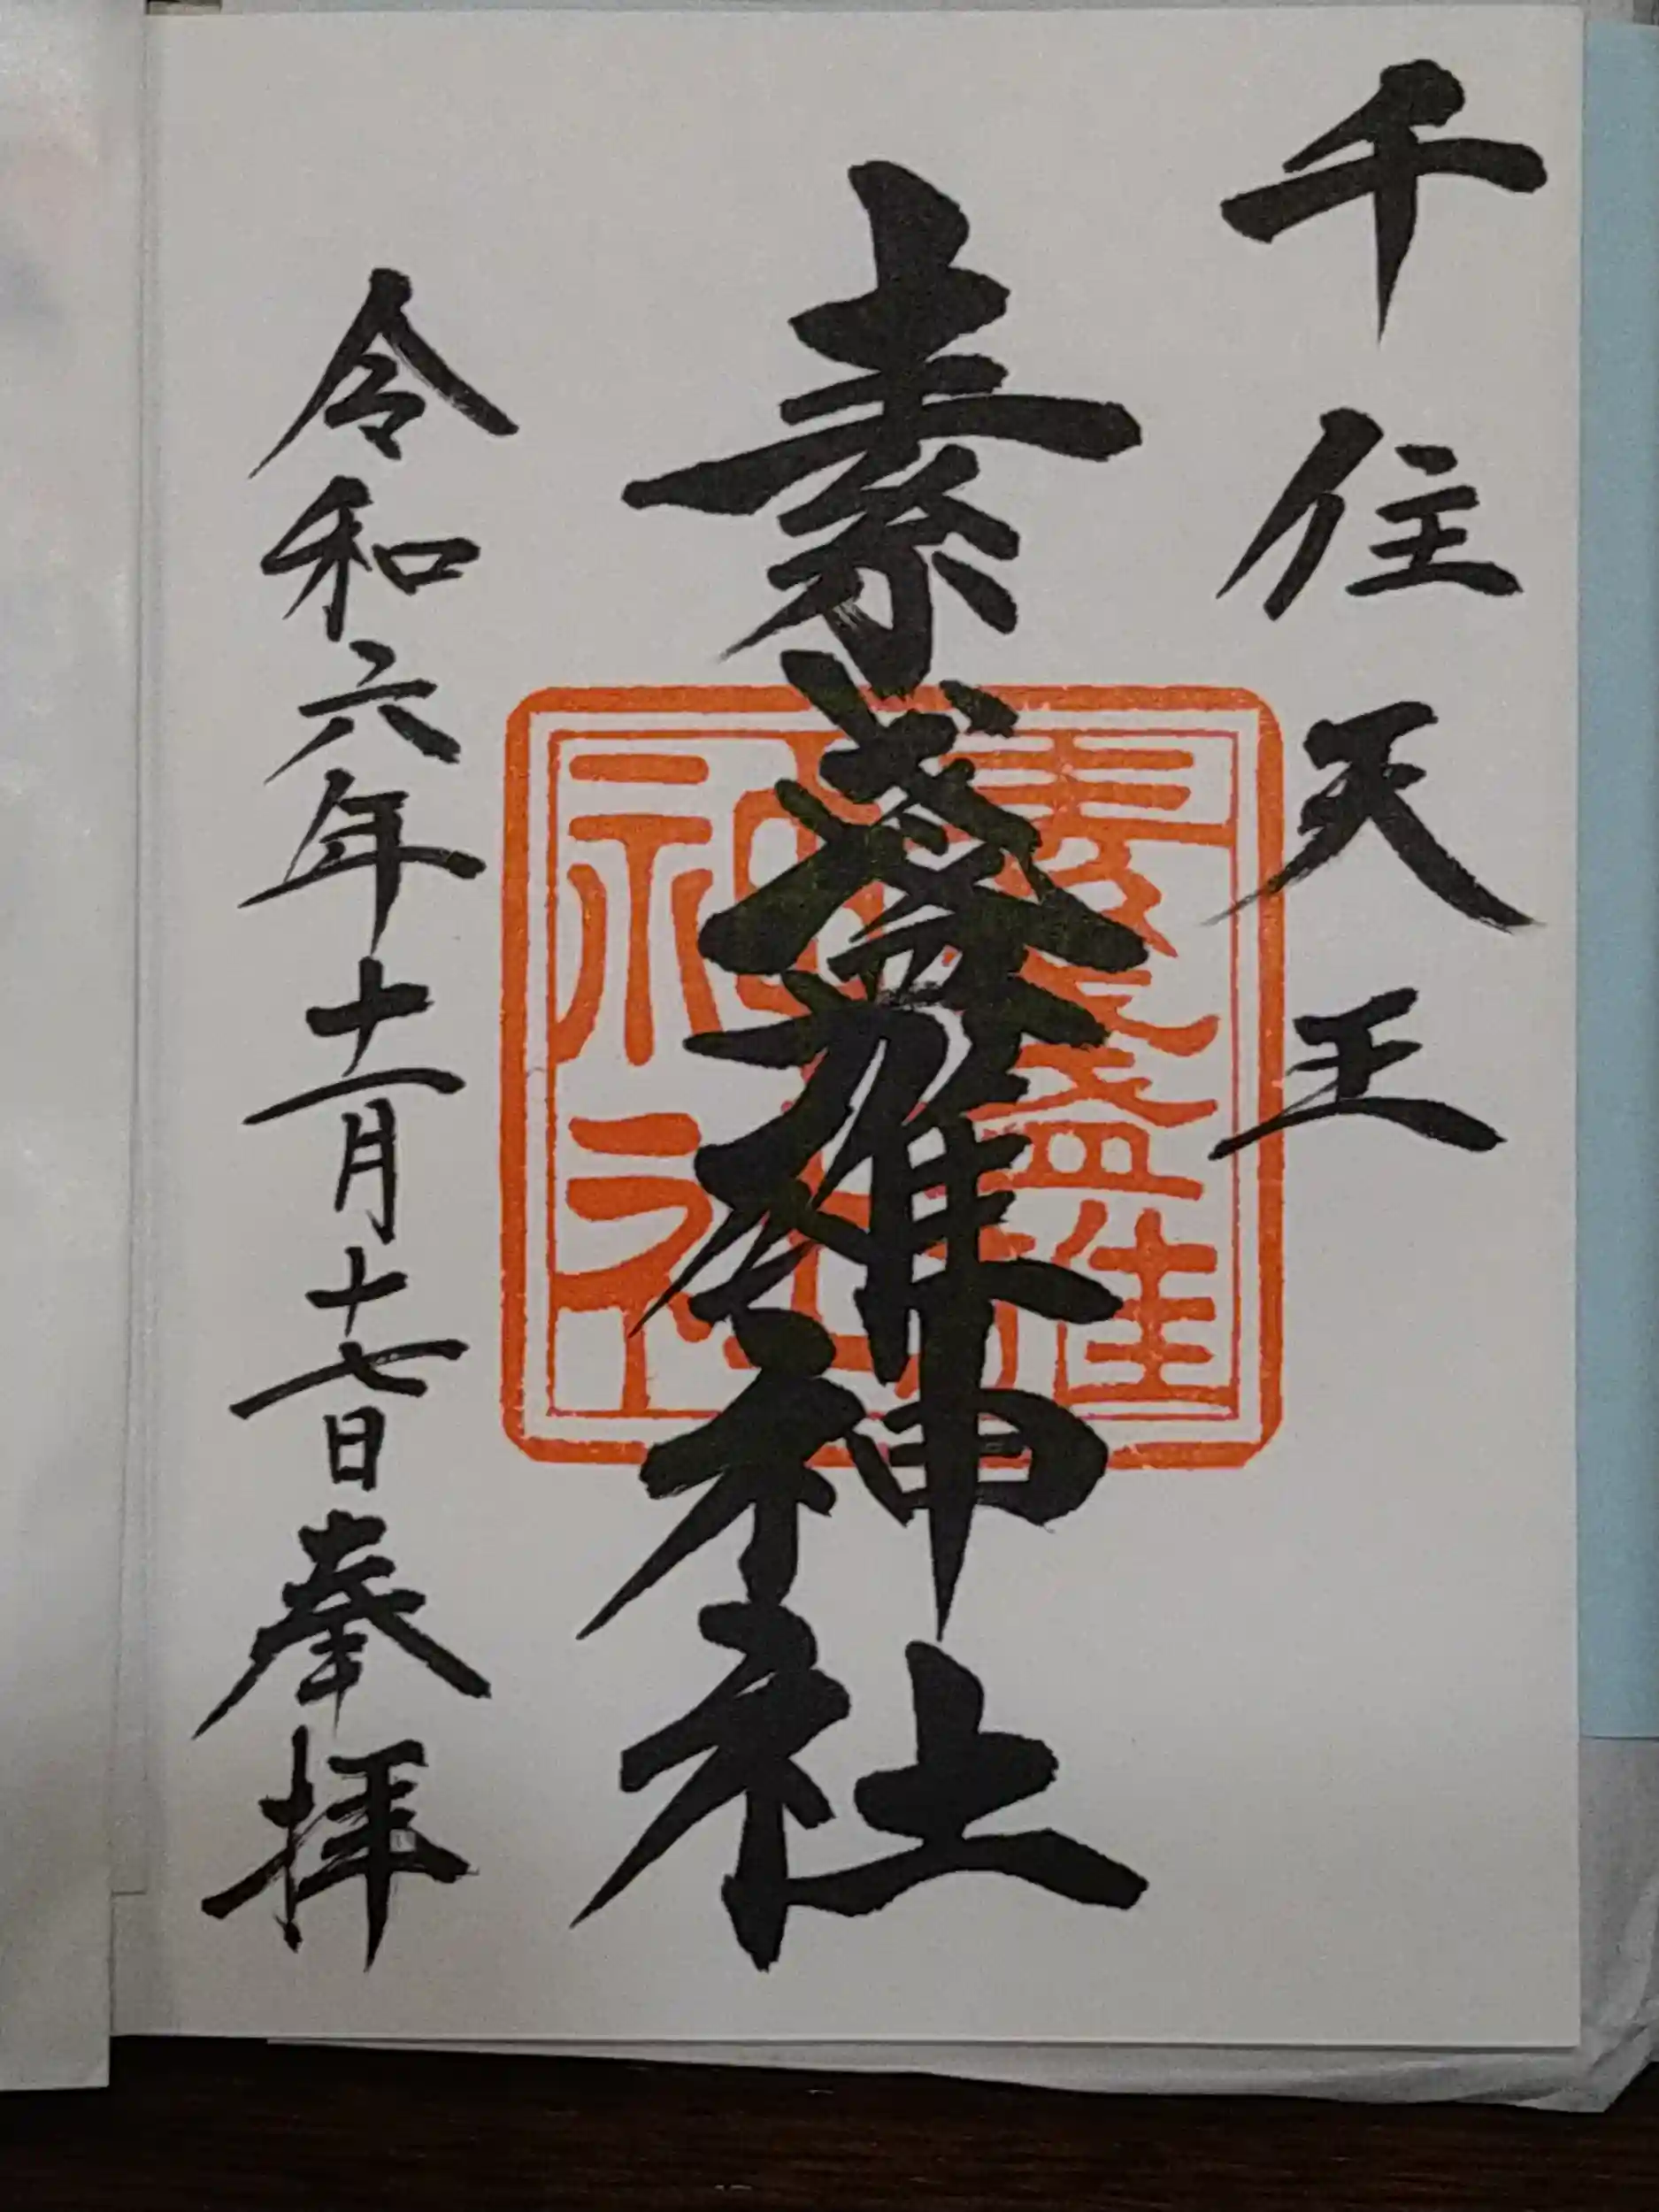 千住天王
素盞雄神社
令和六年十一月十七日奉拝
素盞雄
神社